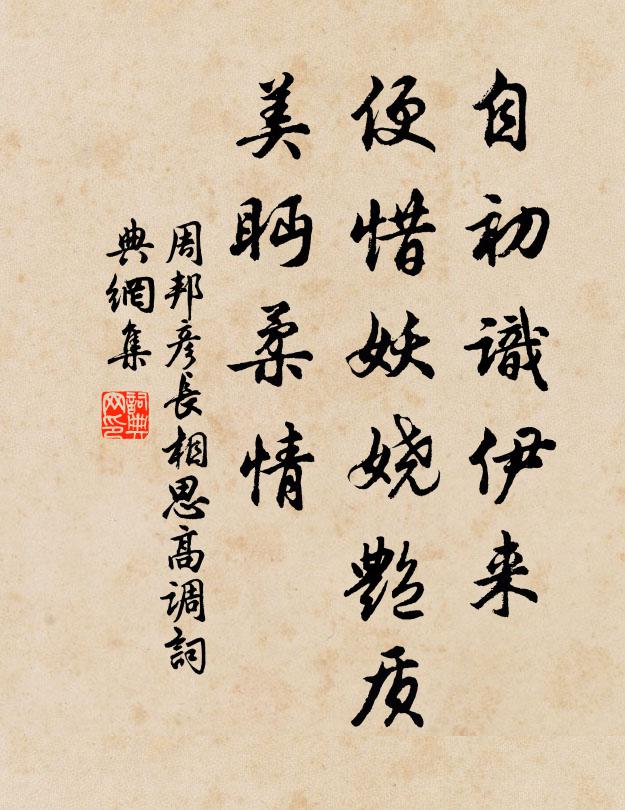 自初識伊来
便惜妖娆艷质
美眄柔情
周邦彦長相思高调詞
典網集
詞典网印